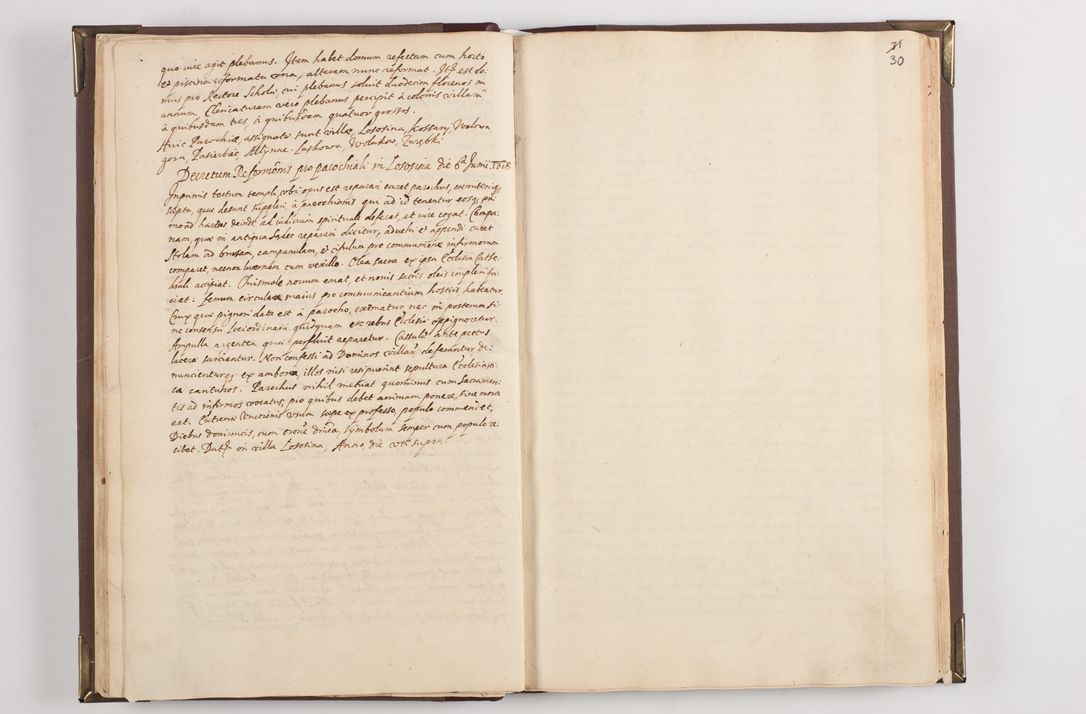 quo iure agit plebanus. Item habet domum refectam cum horto
et piscina reformata una, alteram nunc reformat. Itē est do:
mus pro Rectore Scholæ, cui plebanus soluit duodecim florenos in
annum, Clericaturam vero plebanus percipit à colonis villarū
à quibusdam tres, à quibusdam quatuor grossos.
Huic Parochiæ, assignatæ sunt villæ, Lososina, Kossary, Walowa
gora, Pasierbiec, Młynne. Laskowa, Wolakow, Zarębki
Decretum Reformōnis pro parochiali in Lososina die 6ª Junii 1618
Inprimis tectum templi, ubi opus est reparari curet parochus, cæmiteriiq
septa, quæ desunt suppleri, à parochianis qui ad id tenentur eosq; pri
mo ad hæredes, deinde ad iudicium spirituale deferat, et iure cogat. Campa:
nam, quæ in antiqua Sandec reparari dicitur, aduehi et appendi curet
Stolam ad bursam, campanulam, et cistulam pro communione infirmorum
comparet, necnon lucernam cum vexillo. Olea sacra ex ipsa Ecclesia Cathe:
drali accipiat. Chrismale novum emat, et novis sacris oleis impleri fa:
ciat: ferrum circulare maius pro communicantium hostiis habeatur
Crux quæ pignori data est à parocho, eximatur, nec in posterum si:
ne consensu Loci ordinarii quidquam ex rebus Ecclesiæ oppignoretur.
Ampulla argentea quæ perfluit reparetur. Casulæ ante pectus
laceræ sarciantur. Non confessi ad Dominos villarū deferantur de:
nuncienturq; ex ambona, illos nisi resipuerint sepultura Ecclesiasti:
ca carituros. Parochus nihil metuat quominus cum Sacramen:
tis ad infirmos vocatus, pro quibus debet animam ponere, sine mora
eat. Extremæ Unctionis usum sæpe ex professo populo commendet,
Diebus dominicis, cum orōne dnīca, symbolum semper cum populo re:
citet. Datū in villa Lososina, Anno, die vt supra.
31
30